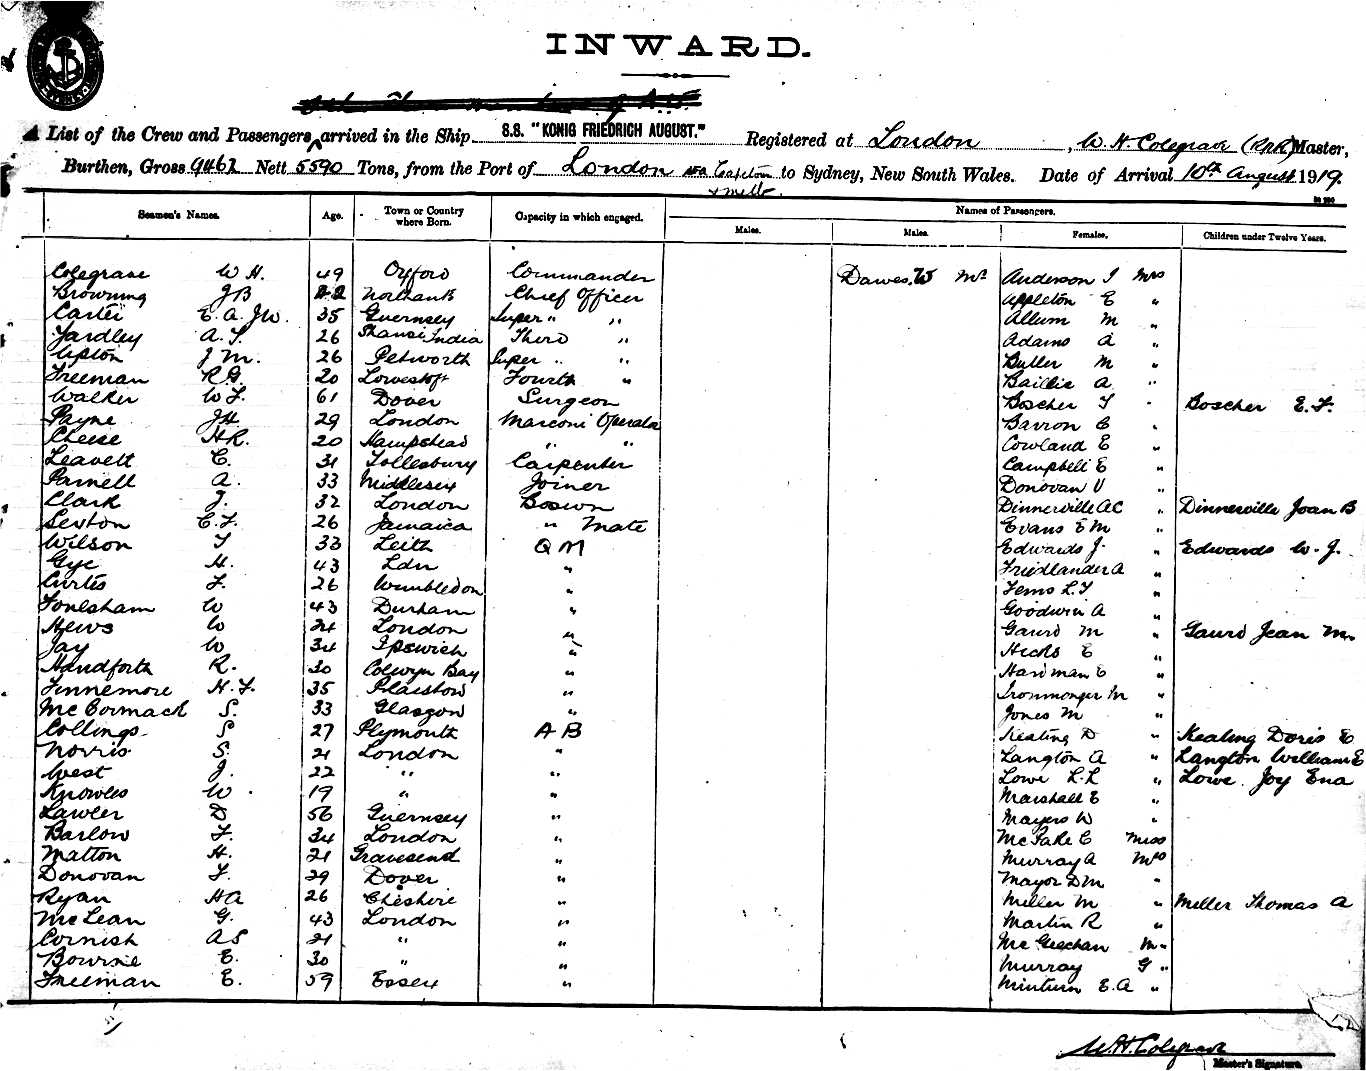 INWARD.
List of the Crew and Passengers arrived in the Ship S.S. "KONIG FRIEDRICH AUGUST." Registered at London, W. H. Colegrave (RNR) Master,
Burthen, Gross 9462 Nett 5590 Tons, from the Port of London via Capetown to Sydney, New South Wales. Date of Arrival 10th August 1919.
+ Melb.
Names of Passengers.
Seamen's Names. Age. Town or Country where Born. Capacity in which engaged. Males. Males. Females. Children under Twelve Years.
Colegrave W H. 49 Oxford Commander Dawes, W Mr Anderson I Mrs
Browning J B Chief Officer Appleton E "
Carter E. A. JW. 35 Guernsey Super " " Allum M "
Yardley A. T. 26 India Third " Adams A "
Upton J M. 26 Petworth Super " " Butler M "
Freeman R G. 20 Lowestoft Fourth " Baillie A "
Walker W F. 61 Dover Surgeon Boscher T " Boscher E. F.
Payne JH 29 London Marconi Operator Barron E "
Cheese HR. 20 Hampstead " " Cowland E "
Leavett C. 31 Tollesbury Carpenter Campbell E "
Parnell A. 33 Middlesex Joiner Donovan V "
Clark J. 32 London Boswn Dinnerville AC " Dinnerville Joan B
Sexton C. F. 26 Jamaica " Mate Evans E M "
Wilson T 33 Leith Q M Edwards J. " Edwards W. J.
Gye H. 43 Ldn " Friedlander A "
Curtis F. 26 Wimbledon " Fems L. T "
Fonesham W 43 Durham " Goodwin A "
Hews W 24 London " Gaurd M " Gaurd Jean M.
Jay W 34 Ipswich " Hicks E "
Handforth R. 30 Colwyn Bay " Hardman E "
Finnemore H. F. 35 Plaistow " Ironmonger M "
McCormack S. 33 Glasgow " Jones M "
Collings S 27 Plymouth A B Keating D " Keating Doris E
Norris S. 21 London " Langton A " Langton William E
West J. 22 " " Lowe L. L " Lowe Joy Ena
Knowles W. 19 " " Marshall E "
Lawler D 56 Guernsey " Mayers W "
Barlow F. 34 London " McFake C Miss
Matton H. 21 Gravesend " Murray A Mrs
Donovan F. 29 Dover " Mayor D M "
Ryan HA 26 Cheshire " Miller M " Miller Thomas A
McLean G. 43 London " Martin R "
Cornish A S 21 " " McGeechan M "
Bourne E. 30 " " Murray G "
Freeman E. 59 Essex " Minturn E. A "
W. H. Colegrave
Master's Signature.